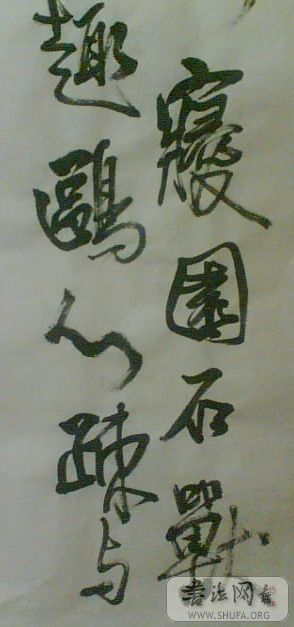 寢園石獸
趣鷗心踈与
書法网
WWW.SHUFA.ORG